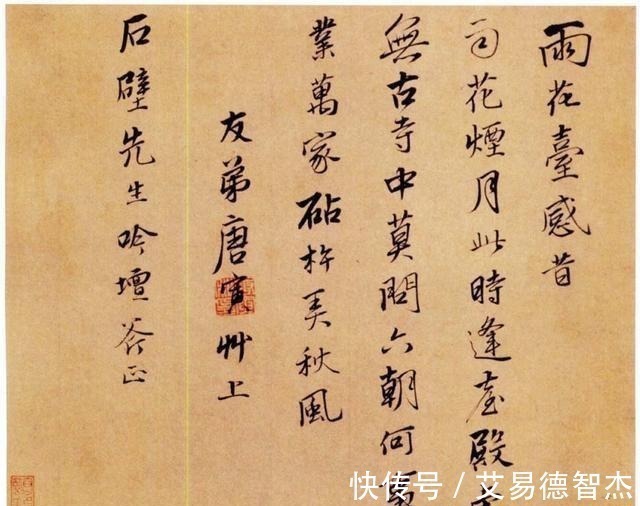 雨花臺感昔
司花煙月此時逢臺殿
無古寺中莫問六朝何
業萬家砧杵美秋風
友弟唐寅艸上
石壁先生吟壇斧正
快传号 / 艾易德智杰